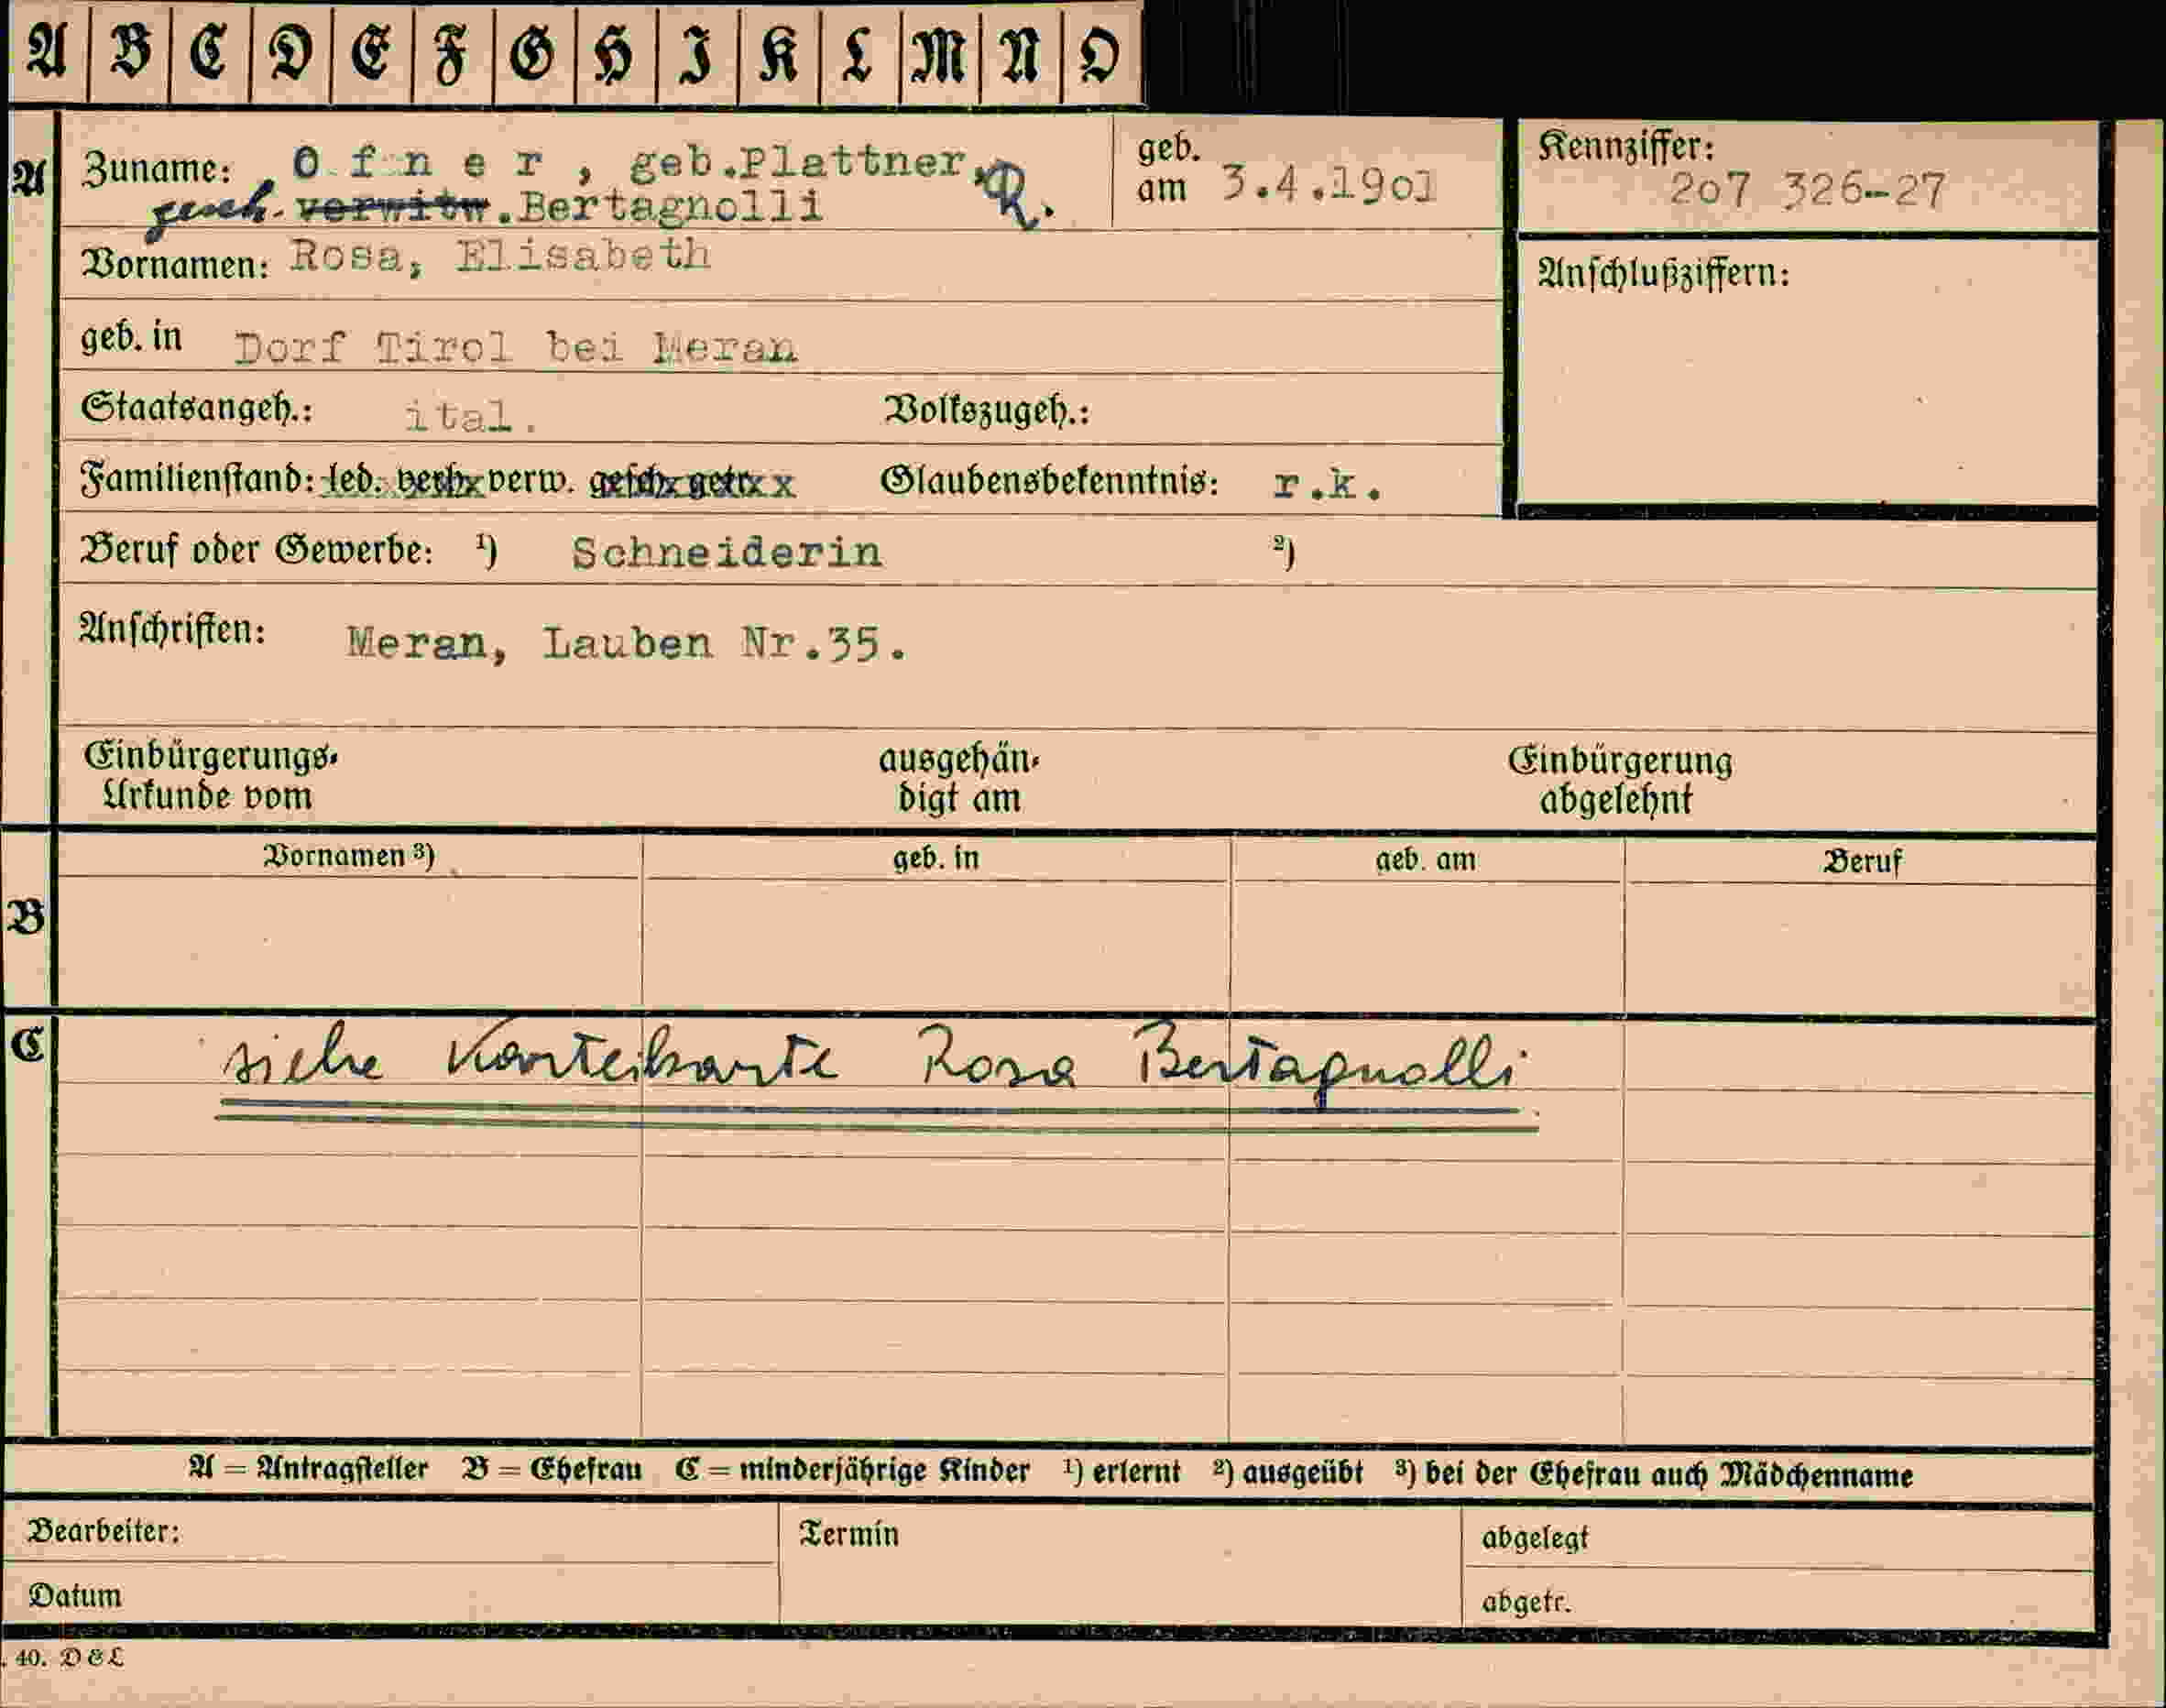 A B C D E F G H I K L M N O
A
Zuname: O f n e r , geb.Plattner, R.
gesch. verwitw.Bertagnolli
geb. am 3.4.1901
Kennziffer:
207 326-27
Vornamen: Rosa, Elisabeth
Anschlußziffern:
geb. in Dorf Tirol bei Meran
Staatsangeh.: ital. Volkszugeh.:
Familienstand: led. verh. verw. gesch. getr. Glaubensbekenntnis: r.k.
Beruf oder Gewerbe: ¹) Schneiderin ²)
Anschriften: Meran, Lauben Nr.35.
Einbürgerungs- ausgehän- Einbürgerung
Urkunde vom digt am abgelehnt
B
Vornamen ³) geb. in geb. am Beruf
C
siehe Karteikarte Rosa Bertagnolli
A = Antragsteller B = Ehefrau C = minderjährige Kinder ¹) erlernt ²) ausgeübt ³) bei der Ehefrau auch Mädchenname
Bearbeiter: Termin abgelegt
Datum abgetr.
. 40. D & L